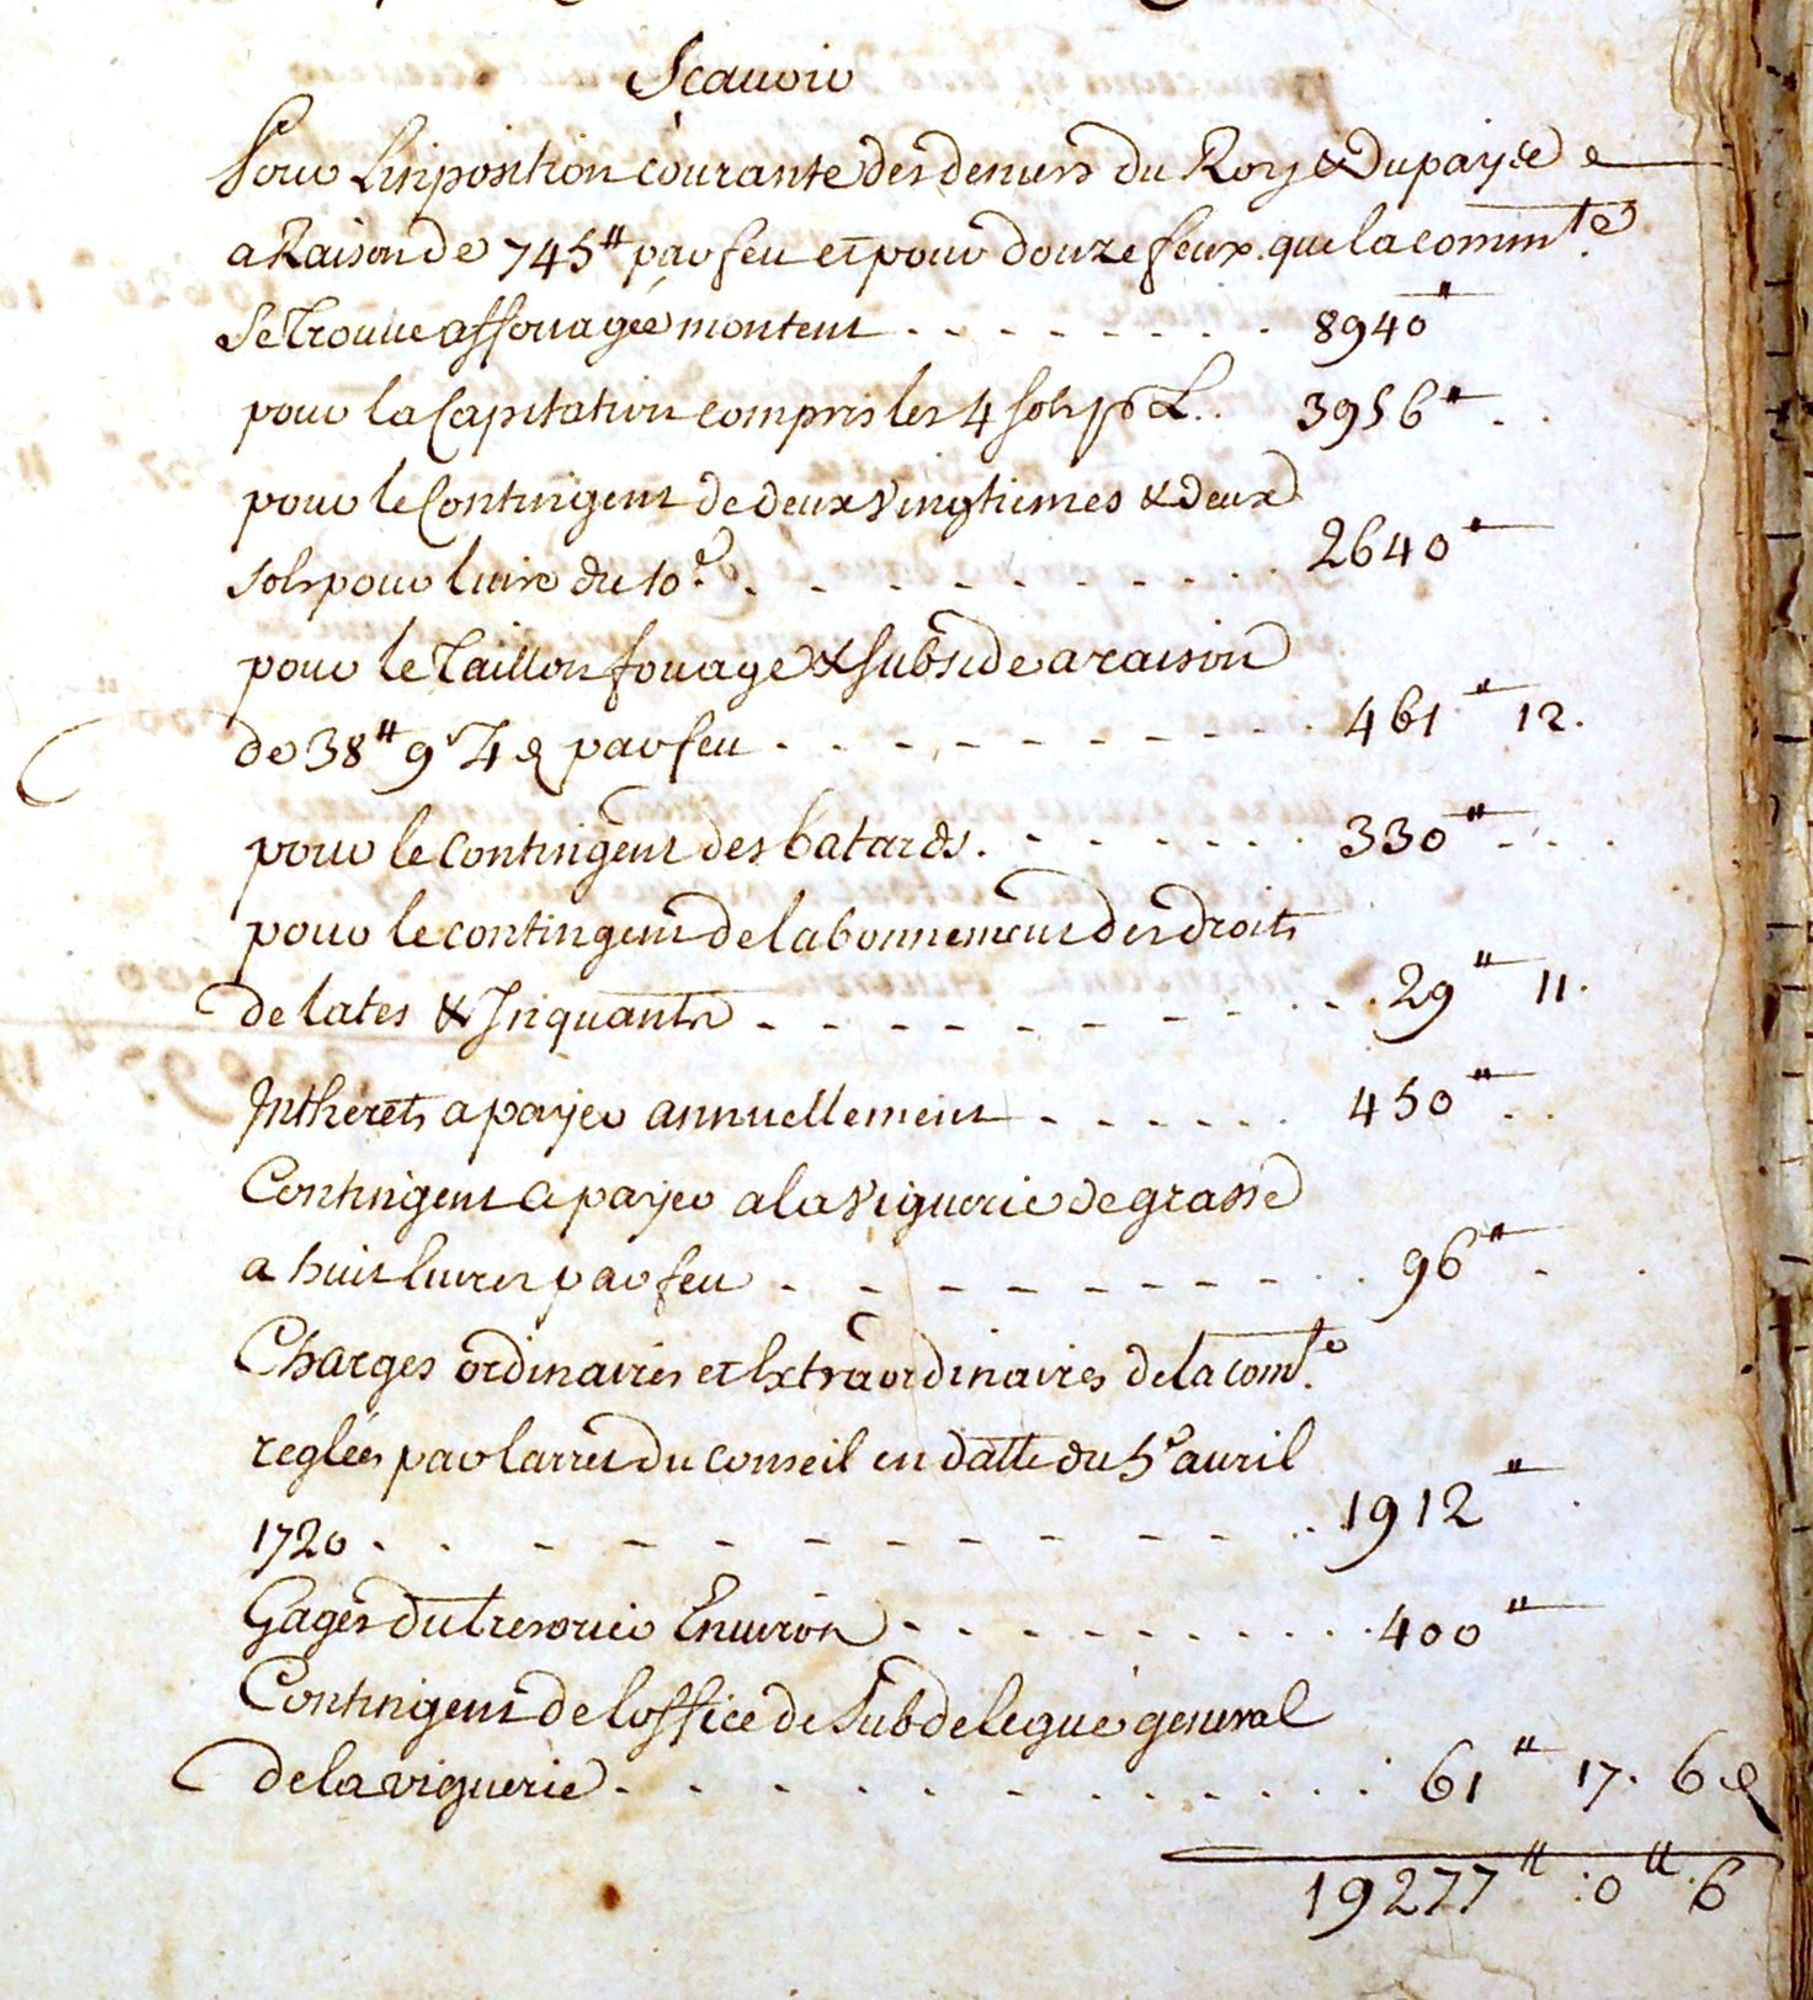 Scauoir
Pour Linposition courante des deniers du Roy & Du payïs
a Raison de 745# par feu et pour douze feux que la commté
Se Trouue affouagée montent 8940#
pour la Capitation compris les 4 sols p L. 3956#
pour le Contingent de deux vingtiemes & deux
sols pour liure du 10e 2640#
pour le Taillon fouage & subside a raison
de 38# 9s 4d par feu 461# 12.
pour le contingent des batards. 330#
pour le contingent de labonnement des droits
de lates & Inquants 29# 11.
Intherets a payer annuellement 450#
Contingent a payer a la viguerie de grasse
a huit liures par feu 96#
Charges ordinaires et Extraordinaires de la comté
reglées par larret du conseil en datte du 5e auril
1720 1912#
Gages du tresorier Enuiron 400#
Contingent de loffice de Subdelegué general
de la viguerie 61# 17. 6d
19277# : 0# . 6